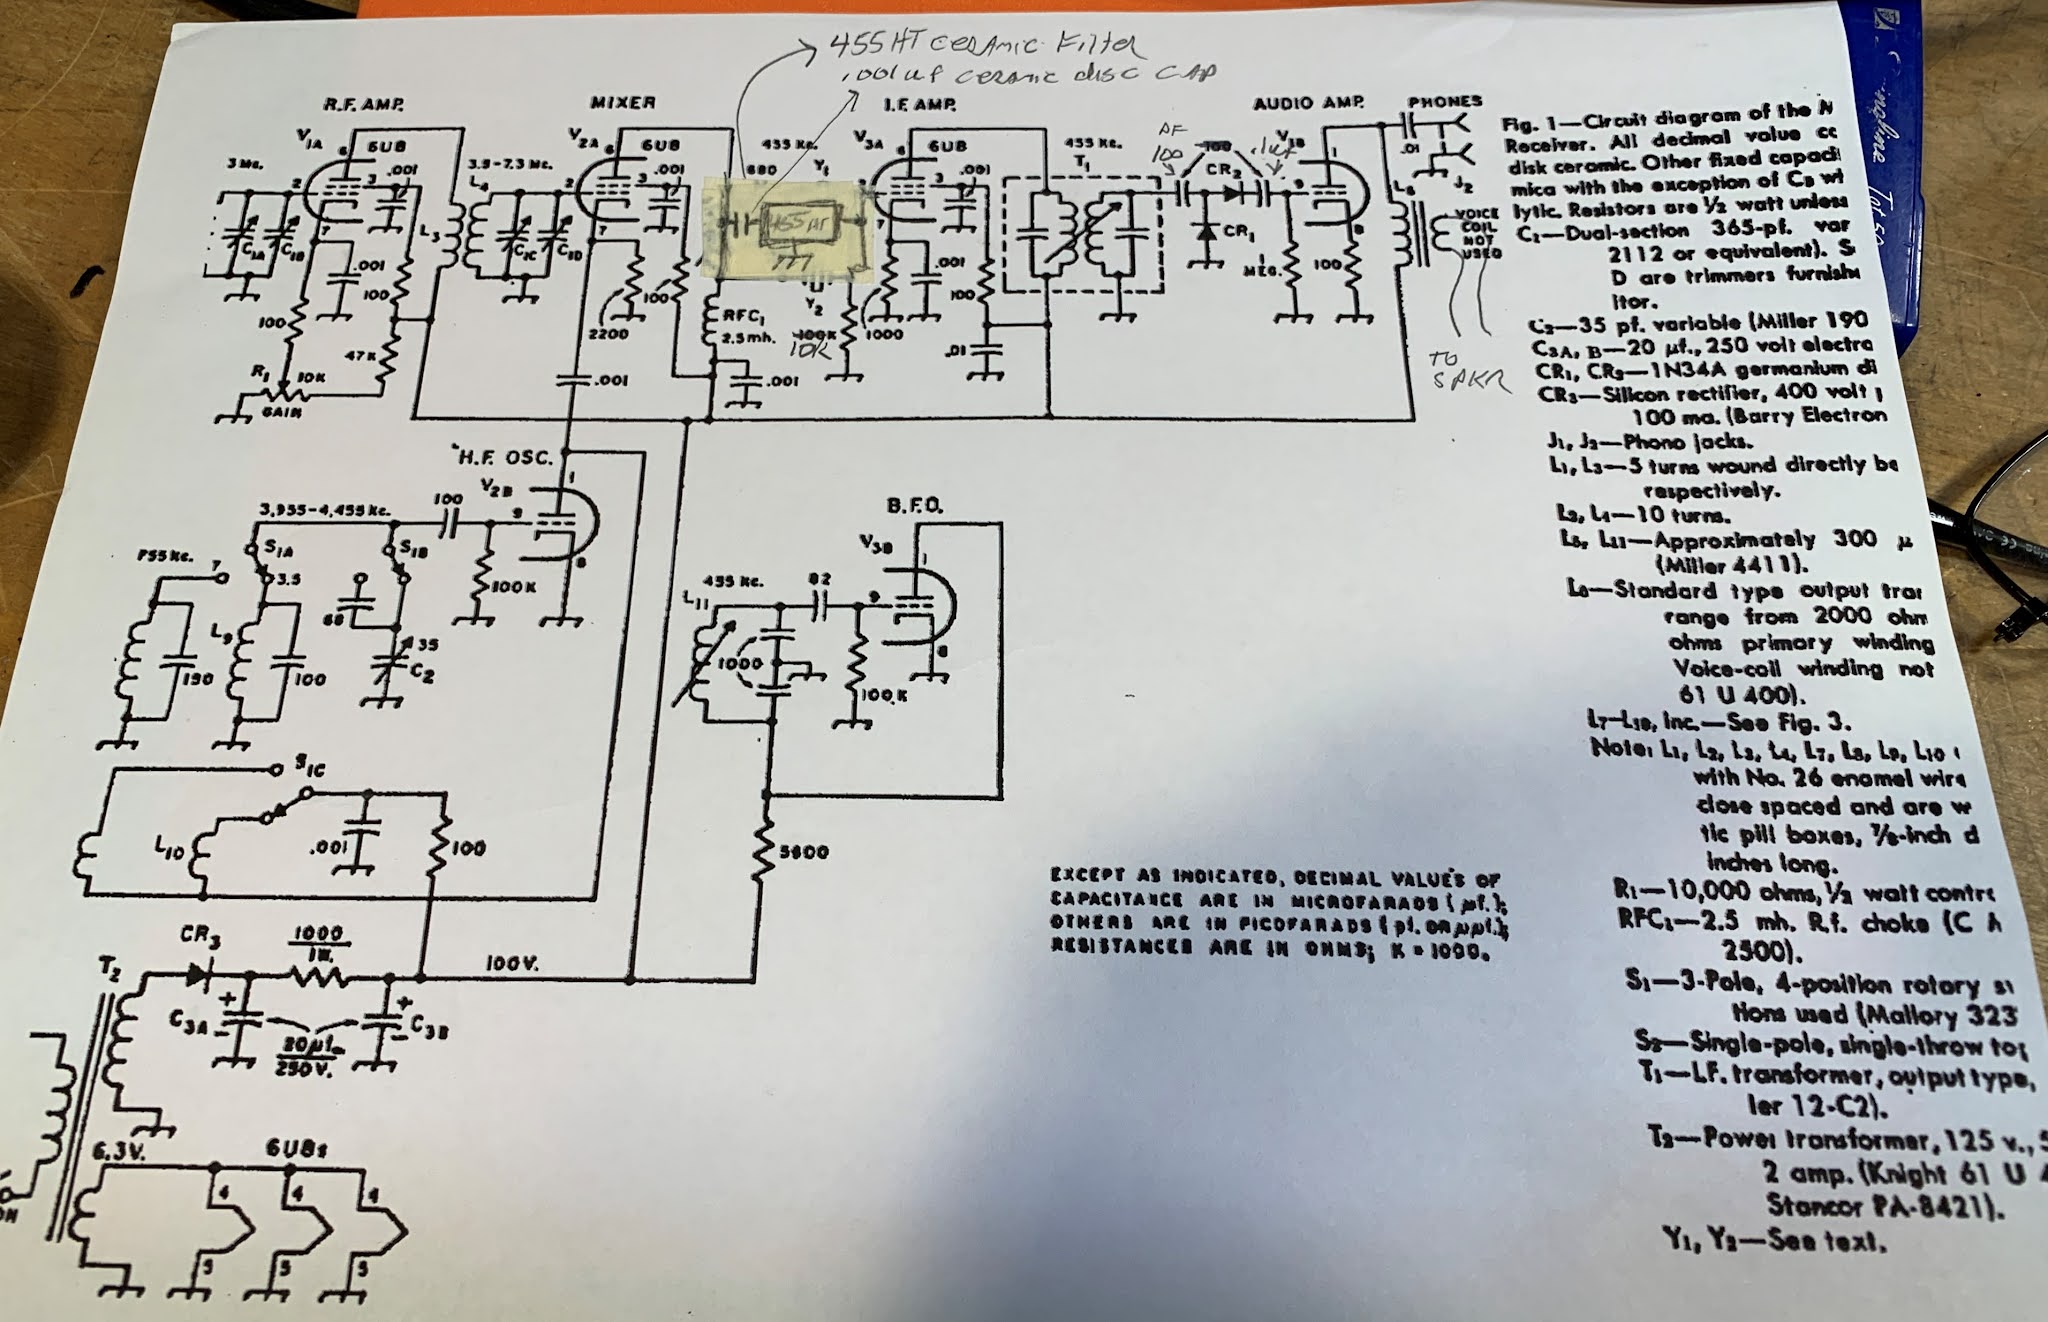 455HT Ceramic Filter
.001uf ceramic disc CAP
R.F. AMP.
MIXER
I.F. AMP.
AUDIO AMP.
PHONES
V1A
6U8
V2A
6U8
455 Kc.
V3A
6U8
455 Kc.
3 Mc.
.001
3.5-7.3 Mc.
L4
.001
680
Y1
.001
T1
100
CR2
.01
J2
L3
C1A
C1B
C1C
C1D
455 HT
CR1
L6
VOICE
COIL
NOT
USED
.001
100
100
.001
100
1 MEG.
100
100
47K
2200
RFC1
2.5mh.
Y2
100K
10K
1000
.01
TO
SPKR
R1
10K
GAIN
.001
.001
H.F. OSC.
V2B
3,955-4,455 Kc.
100
S1A
S1B
7
3.5
100K
B.F.O.
V3B
455 Kc.
82
L11
1000
100K
L9
190
100
68
35
C2
S1C
L10
.001
100
5600
EXCEPT AS INDICATED, DECIMAL VALUES OF
CAPACITANCE ARE IN MICROFARADS (µf.);
OTHERS ARE IN PICOFARADS (pf. OR µµf.);
RESISTANCES ARE IN OHMS; K = 1000.
CR3
1000
1W.
100V.
T2
C3A
20µf.
250V.
C3B
6.3V.
6U8s
4
4
4
5
5
5
Fig. 1—Circuit diagram of the
Receiver. All decimal value
disk ceramic. Other fixed
mica with the exception of C3
lytic. Resistors are ½ watt unless
C1—Dual-section 365-pf.
2112 or equivalent).
D are trimmers
itor.
C2—35 pf. variable (Miller 190
C3A, B—20 µf., 250 volt
CR1, CR2—1N34A germanium
CR3—Silicon rectifier, 400 volt
100 ma. (Barry Electron
J1, J2—Phono jacks.
L1, L3—5 turns wound directly
respectively.
L2, L4—10 turns.
L5, L11—Approximately 300
(Miller 4411).
L6—Standard type output
range from 2000
ohms primary winding
Voice-coil winding not
61 U 400).
L7-L10, Inc.—See Fig. 3.
Note: L1, L2, L3, L4, L7, L8, L9, L10
with No. 26 enamel wire
close spaced and are
tic pill boxes, ⅞-inch
inches long.
R1—10,000 ohms, ½ watt
RFC1—2.5 mh. R.f. choke
2500).
S1—3-Pole, 4-position rotary
tions used (Mallory 323
S2—Single-pole, single-throw
T1—I.F. transformer, output type,
ler 12-C2).
T2—Power transformer, 125 v.,
2 amp. (Knight 61 U
Stancor PA-8421).
Y1, Y2—See text.